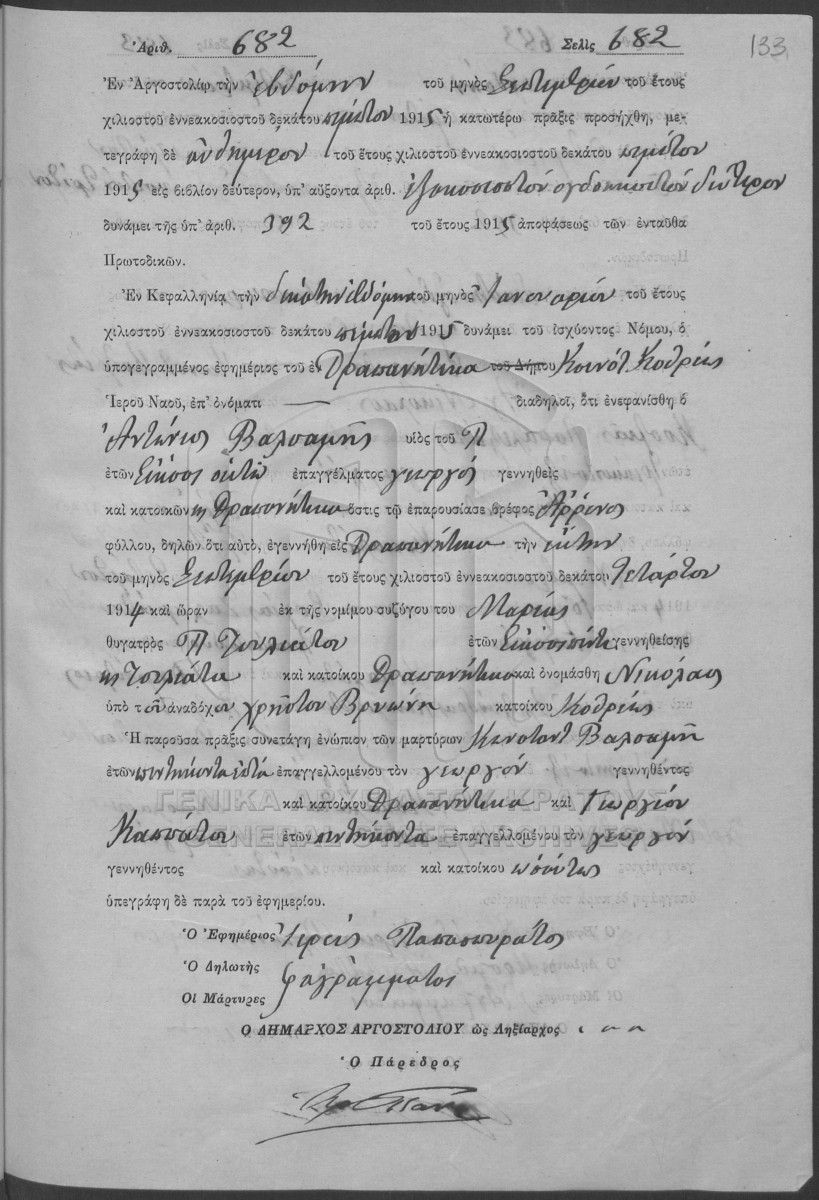 Ἀριθ. 682 Σελὶς 682 133
Ἐν Ἀργοστολίῳ τὴν ἑβδόμην τοῦ μηνὸς Σεπτεμβρίου τοῦ ἔτους
χιλιοστοῦ ἐννεακοσιοστοῦ δεκάτου πέμπτου 1915 ἡ κατωτέρω πρᾶξις προσήχθη, με-
τεγράφη δὲ αὐθημερὸν τοῦ ἔτους χιλιοστοῦ ἐννεακοσιοστοῦ δεκάτου πέμπτου
1915 εἰς βιβλίον δεύτερον, ὑπ' αὔξοντα ἀριθ. ἑξακοσιοστὸν ὀγδοηκοστὸν δεύτερον
δυνάμει τῆς ὑπ' ἀριθ. 392 τοῦ ἔτους 1915 ἀποφάσεως τῶν ἐνταῦθα
Πρωτοδικῶν.
Ἐν Κεφαλληνίᾳ τὴν εἰκοστὴν ἑβδόμην τοῦ μηνὸς Ἰανουαρίου τοῦ ἔτους
χιλιοστοῦ ἐννεακοσιοστοῦ δεκάτου πέμπτου 1915 δυνάμει τοῦ ἰσχύοντος Νόμου, ὁ
ὑπογεγραμμένος ἐφημέριος τοῦ ἐν Δραπανήτικα τοῦ Δήμου Κοινότ. Κοθρέας
Ἱεροῦ Ναοῦ, ἐπ' ὀνόματι — διαδηλοῖ, ὅτι ἐνεφανίσθη ὁ
Ἀντώνιος Βαλσαμῆς υἱὸς τοῦ Π
ἐτῶν εἴκοσι ὀκτὼ ἐπαγγέλματος γεωργὸς γεννηθεὶς
καὶ κατοικῶν εἰς Δραπανήτικα ὅστις τῷ ἐπαρουσίασε βρέφος ἄρρενος
φύλλου, δηλῶν ὅτι αὐτὸ, ἐγεννήθη εἰς Δραπανήτικα τὴν ἕκτην
τοῦ μηνὸς Σεπτεμβρίου τοῦ ἔτους χιλιοστοῦ ἐννεακοσιοστοῦ δεκάτου τετάρτου
1914 καὶ ὥραν ἐκ τῆς νομίμου συζύγου του Μαρίας
θυγατρὸς Π. Τουλιάτου ἐτῶν εἴκοσι πέντε γεννηθείσης
εἰς Τουλιάτα καὶ κατοίκου Δραπανήτικα καὶ ὀνομάσθη Νικόλαος
ὑπὸ τῶν ἀναδόχων Χρῆστον Βρυώνη κατοίκου Κοθρέας
Ἡ παροῦσα πρᾶξις συνετάγη ἐνώπιον τῶν μαρτύρων Κωνσταντ Βαλσαμῆ
ἐτῶν πεντήκοντα ἑπτὰ ἐπαγγελλομένου τὸν γεωργὸν γεννηθέντος
ΓΕΝΙΚΑ ΑΡΧΕΙΑ ΤΟΥ ΚΡΑΤΟΥΣ
καὶ κατοίκου Δραπανήτικα καὶ Γεωργίου
GENERAL STATE ARCHIVES
Κασπάτου ἐτῶν πεντήκοντα ἐπαγγελλομένου τὸν γεωργὸν
γεννηθέντος καὶ κατοίκου ὡσαύτως
ὑπεγράφη δὲ παρὰ τοῦ ἐφημερίου.
Ὁ Ἐφημέριος Ἱερεὺς
Ὁ Δηλωτὴς ἀγράμματος
Οἱ Μάρτυρες
Ὁ ΔΗΜΑΡΧΟΣ ΑΡΓΟΣΤΟΛΙΟΥ ὡς Ληξίαρχος
Ὁ Πάρεδρος